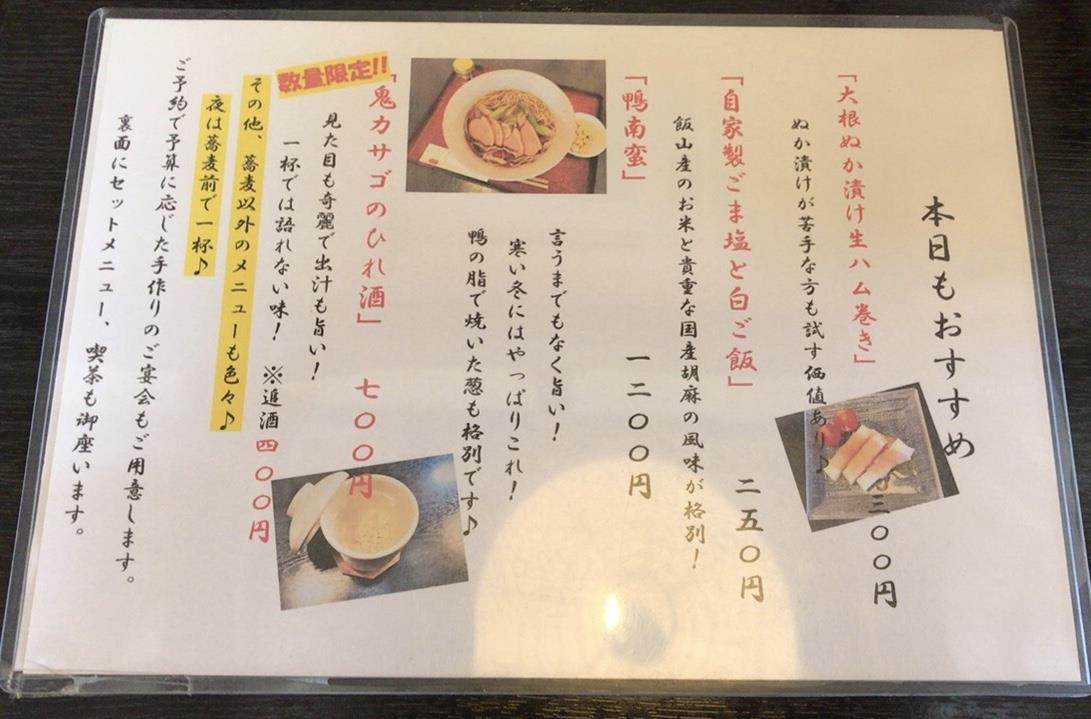 本日もおすすめ
「大根ぬか漬け生ハム巻き」
三〇〇円
ぬか漬けが苦手な方も試す価値あり♪
「自家製ごま塩と白ご飯」
二五〇円
飯山産のお米と貴重な国産胡麻の風味が格別！
「鴨南蛮」
一二〇〇円
言うまでもなく旨い！
寒い冬にはやっぱりこれ！
鴨の脂で焼いた葱も格別です♪
数量限定!!
「鬼カサゴのひれ酒」 七〇〇円
見た目も奇麗で出汁も旨い！
一杯では語れない味！ ※追酒四〇〇円
その他、蕎麦以外のメニューも色々♪
夜は蕎麦前で一杯♪
ご予約で予算に応じた手作りのご宴会もご用意します。
裏面にセットメニュー、喫茶も御座います。